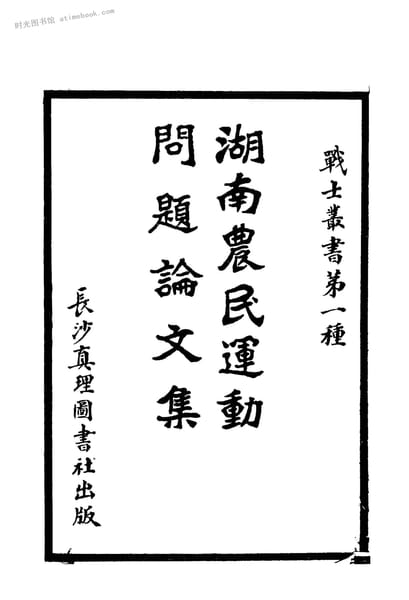 时光图书馆 atimebook.com
戰士叢書第一種
湖南農民運動
問題論文集
長沙真理圖書社出版